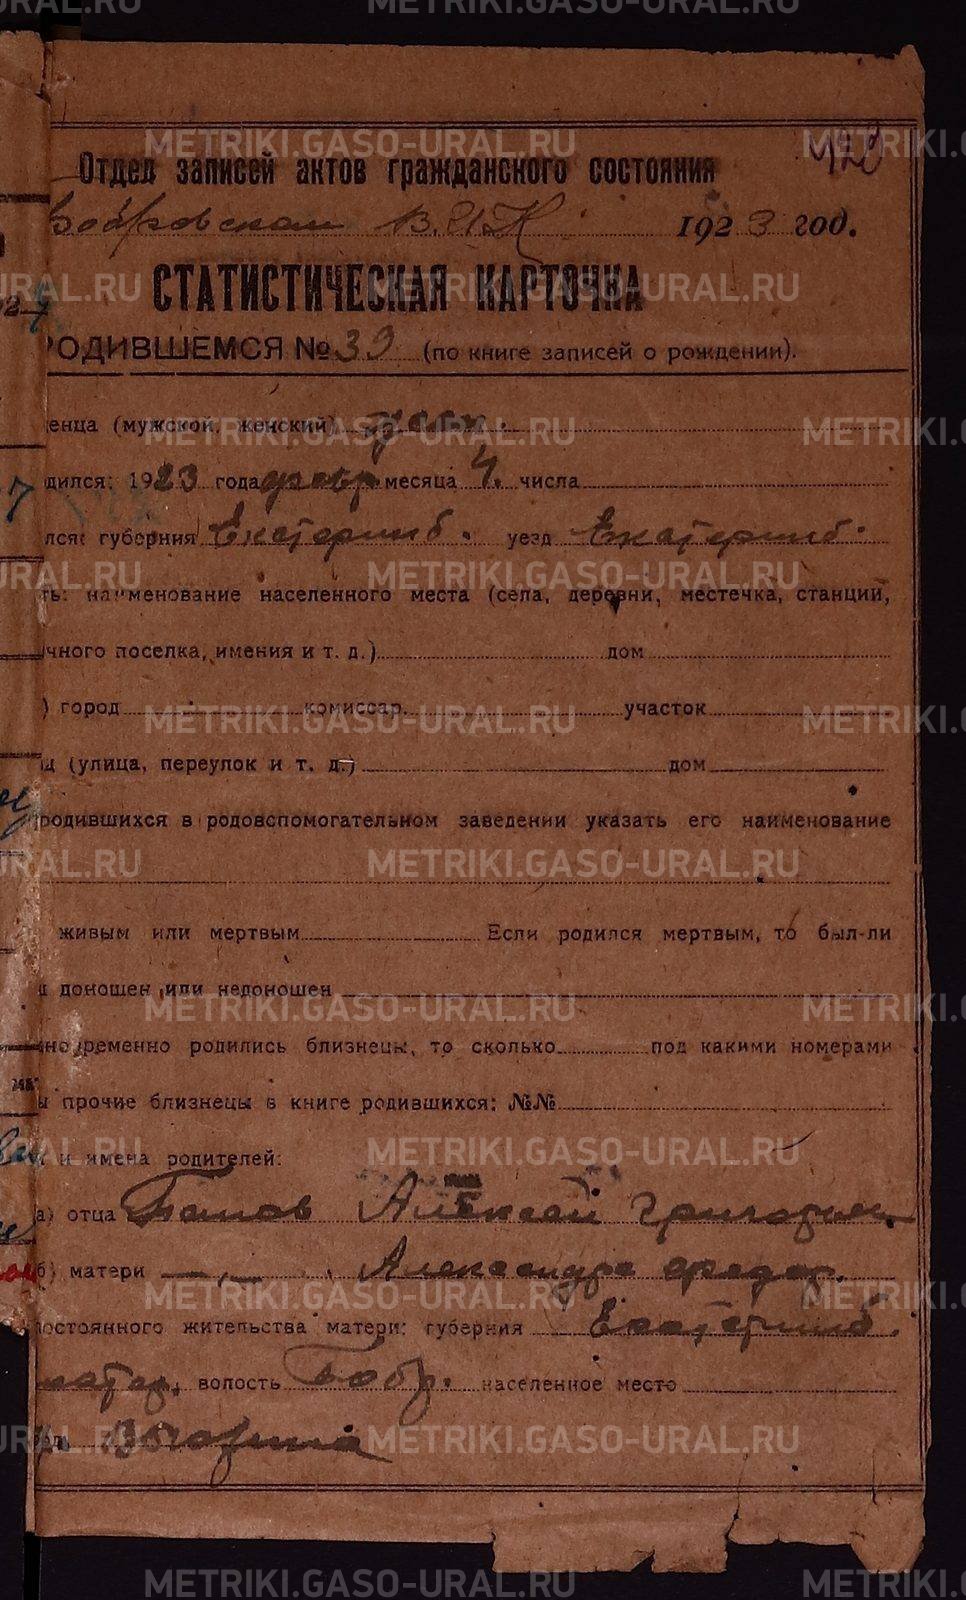 428
Отдел записей актов гражданского состояния
Бобровском В.И.К. 1923 год.
СТАТИСТИЧЕСКАЯ КАРТОЧКА
РОДИВШЕМСЯ № 39 (по книге записей о рождении).
енца (мужской, женский)
дился: 1923 года февр месяца 4. числа
лся: губерния Екатеринб. уезд Екатеринб.
ть: наименование населенного места (села, деревни, местечка, станции,
чного поселка, имения и т. д.) дом
) город комиссар. участок
щ (улица, переулок и т. д.) дом
родившихся в родовспомогательном заведении указать его наименование
живым или мертвым Если родился мертвым, то был-ли
доношен или недоношен
дновременно родились близнецы, то сколько под какими номерами
ы прочие близнецы в книге родившихся: №№
и имена родителей:
а) отца Алексей Григорьев.
б) матери —„— Александра Федор.
постоянного жительства матери: губерния Екатеринб.
волость Бобр. населенное место
METRIKI.GASO-URAL.RU